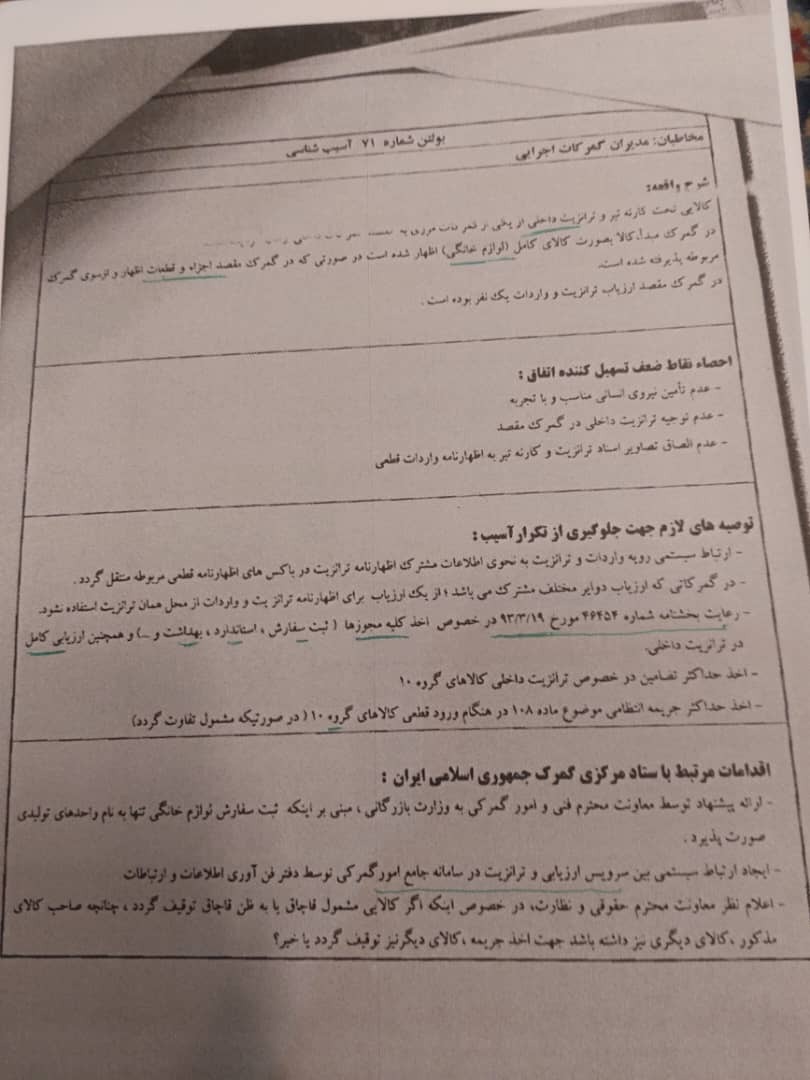 مخاطبان: مدیران گمرکات اجرایی
بولتن شماره ۷۱ آسیب شناسی
شرح واقعه:
کالایی تحت کارنه تیر و ترانزیت داخلی از یکی از
در گمرک مبدأ، کالا بصورت کالای کامل (لوازم خانگی) اظهار شده است در صورتی که در گمرک مقصد اجزاء و قطعات اظهار و ازسوی گمرک
مربوطه پذیرفته شده است.
در گمرک مقصد ارزیاب ترانزیت و واردات یک نفر بوده است .
احصاء نقاط ضعف تسهیل کننده اتفاق :
- عدم تأمین نیروی انسانی مناسب و با تجربه
- عدم توجیه ترانزیت داخلی در گمرک مقصد
- عدم الصاق تصاویر اسناد ترانزیت و کارنه تیر به اظهارنامه واردات قطعی
توصیه های لازم جهت جلوگیری از تکرارآسیب :
- ارتباط سیستمی رویه واردات و ترانزیت به نحوی اطلاعات مشترک اظهارنامه ترانزیت در باکس های اظهارنامه قطعی مربوطه منتقل گردد .
- در گمرکاتی که ارزیاب دوایر مختلف مشترک می باشد ؛ از یک ارزیاب برای اظهارنامه ترانزیت و واردات از محل همان ترانزیت استفاده نشود.
- رعایت بخشنامه شماره ۴۶۴۵۴ مورخ ۹۳/۳/۱۹ در خصوص اخذ کلیه مجوزها ( ثبت سفارش ، استاندارد ، بهداشت و ...) و همچنین ارزیابی کامل
در ترانزیت داخلی.
- اخذ حداکثر تضامین در خصوص ترانزیت داخلی کالاهای گروه ۱۰
- اخذ حداکثر جریمه انتظامی موضوع ماده ۱۰۸ در هنگام ورود قطعی کالاهای گروه ۱۰ ( در صورتیکه مشمول تفاوت گردد)
اقدامات مرتبط با ستاد مرکزی گمرک جمهوری اسلامی ایران :
- ارائه پیشنهاد توسط معاونت محترم فنی و امور گمرکی به وزارت بازرگانی ، مبنی بر اینکه ثبت سفارش لوازم خانگی تنها به نام واحدهای تولیدی
صورت پذیرد .
- ایجاد ارتباط سیستمی بین سرویس ارزیابی و ترانزیت در سامانه جامع امورگمرکی توسط دفتر فن آوری اطلاعات و ارتباطات
- اعلام نظر معاونت محترم حقوقی و نظارت، در خصوص اینکه اگر کالایی مشمول قاچاق یا به ظن قاچاق توقیف گردد ، چنانچه صاحب کالای
مذکور ،کالای دیگری نیز داشته باشد جهت اخذ جریمه ،کالای دیگرنیز توقیف گردد یا خیر؟